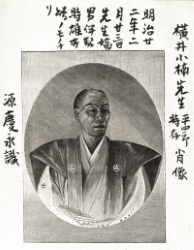 横井小楠先生
平四郎
時存
肖像
明治廿
二年二
月廿三日
先生嫡
男伊勢
時雄ヨリ
源慶永識